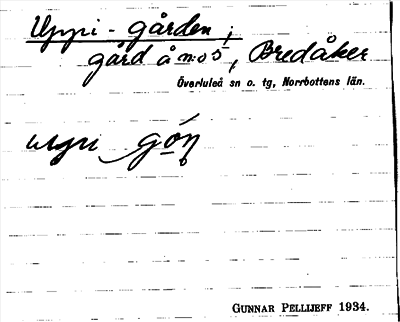 Uppi-gården;
gård å n:o 5, Bredåker
Överluleå sn o. tg, Norrbottens län.
uppi
GUNNAR PELLIJEFF 1934.